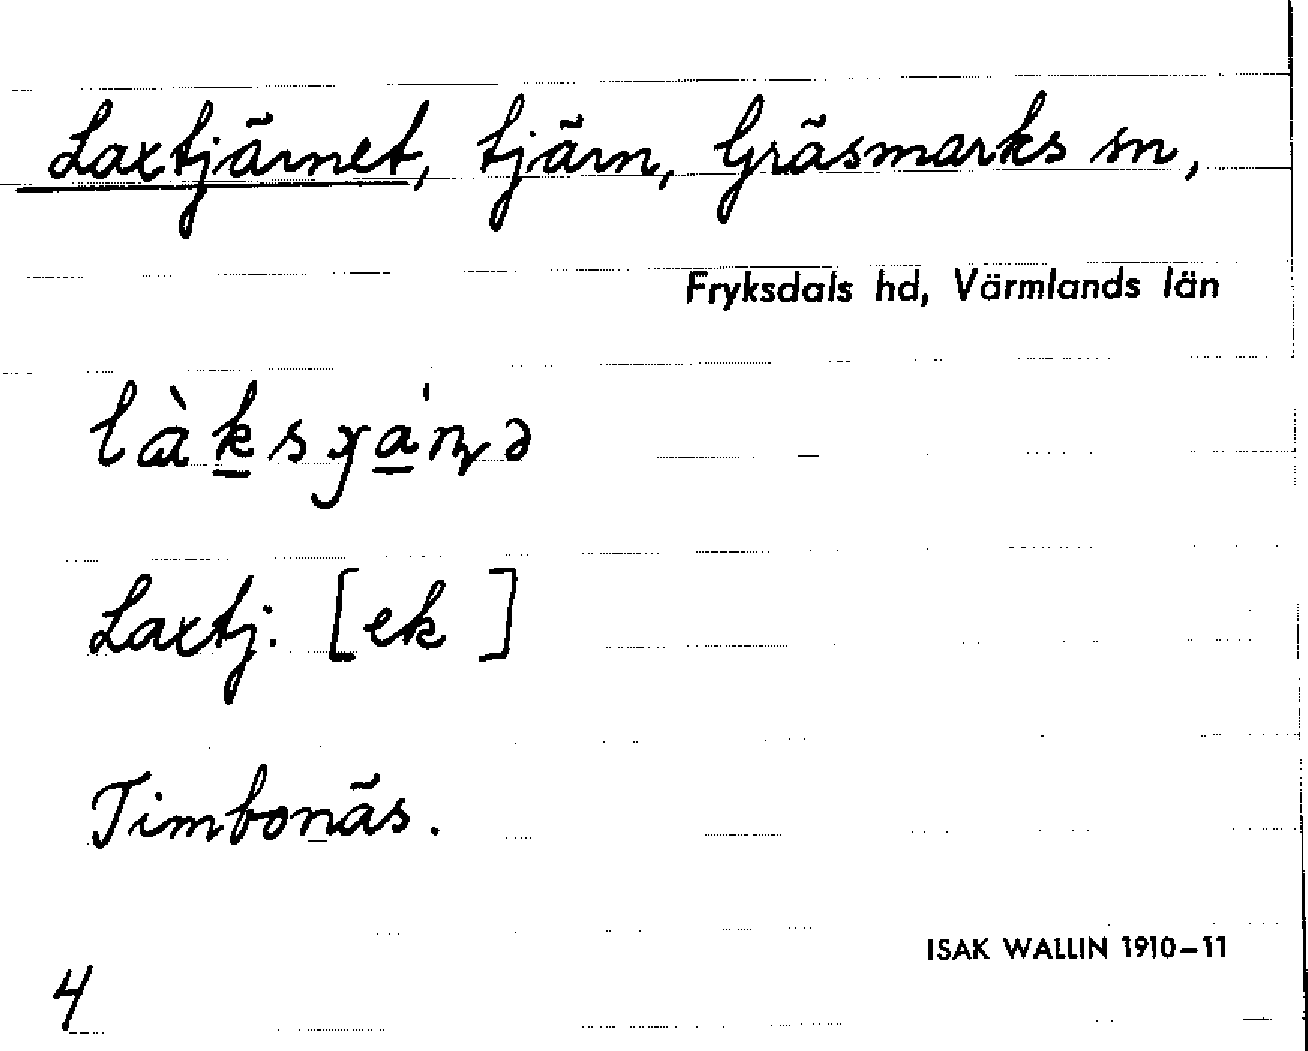 Laxtjärnet, tjärn, Gräsmarks sn,
Fryksdals hd, Värmlands län
Laxtj. [ek ]
Timbonäs.
ISAK WALLIN 1910–11
4